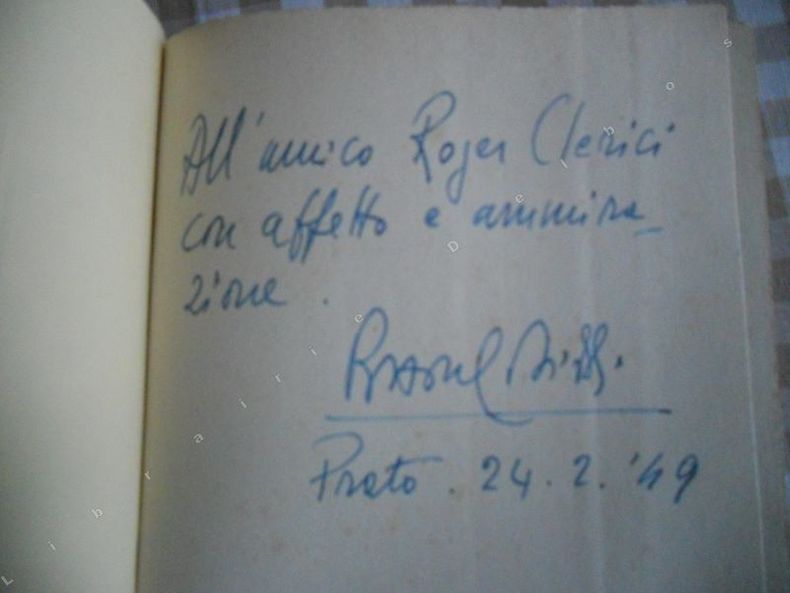 All'amico Roger Clerici
con affetto e ammira_
zione.
Prato. 24. 2. '49
Librairie Deleibos